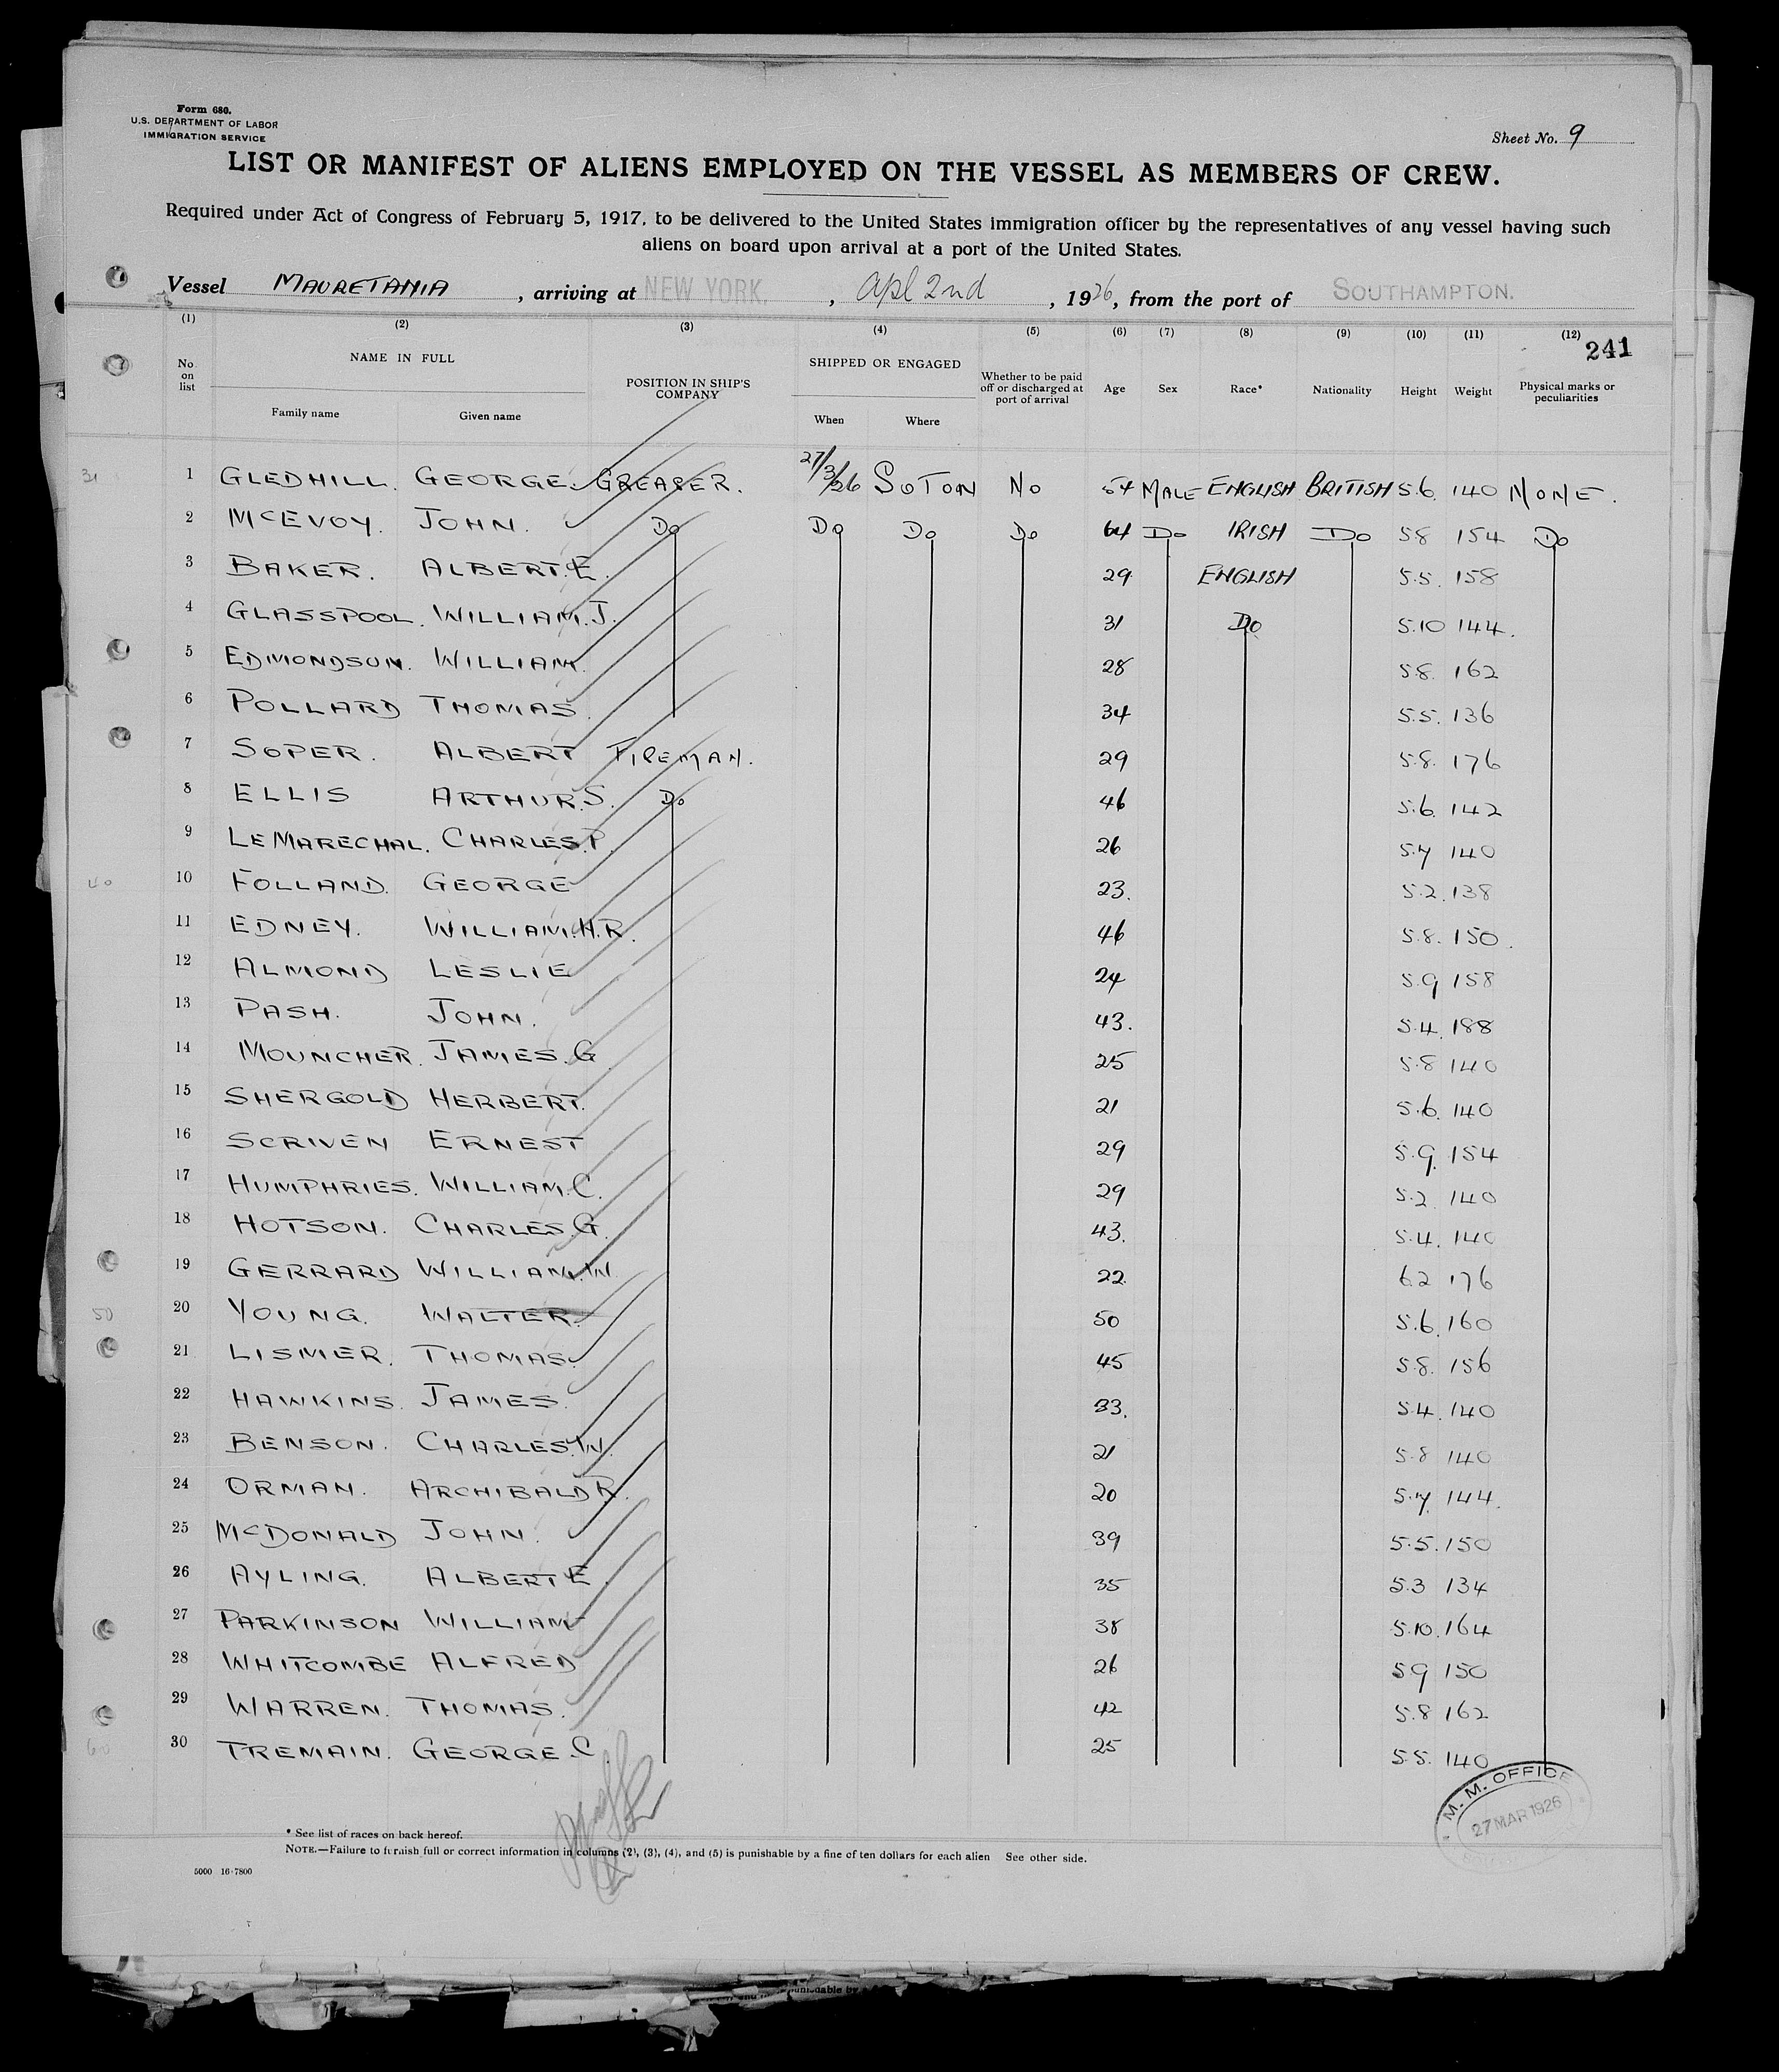 Form 680.
U.S. DEPARTMENT OF LABOR
IMMIGRATION SERVICE
Sheet No. 9
LIST OR MANIFEST OF ALIENS EMPLOYED ON THE VESSEL AS MEMBERS OF CREW.
Required under Act of Congress of February 5, 1917, to be delivered to the United States immigration officer by the representatives of any vessel having such
aliens on board upon arrival at a port of the United States.
Vessel MAURETANIA, arriving at NEW YORK, Apl 2nd, 1926, from the port of SOUTHAMPTON.
(1) (2) (3) (4) (5) (6) (7) (8) (9) (10) (11) (12)
241
No. on list NAME IN FULL Family name Given name POSITION IN SHIP'S COMPANY SHIPPED OR ENGAGED When Where Whether to be paid off or discharged at port of arrival Age Sex Race* Nationality Height Weight Physical marks or peculiarities
31 1 GLEDHILL. GEORGE. GREASER. 27/3/26 SOTON NO 54 MALE ENGLISH BRITISH 5.6. 140 NONE.
2 McEVOY. JOHN. Do Do Do Do 64 Do IRISH Do 5 8 154 Do
3 BAKER. ALBERT.E. 29 ENGLISH 5.5. 158
4 GLASSPOOL. WILLIAM.J. 31 Do 5.10 144.
5 EDMONDSON. WILLIAM. 28 5.8. 162
6 POLLARD THOMAS. 34 5.5. 136
7 SOPER. ALBERT FIREMAN. 29 5.8. 176
8 ELLIS ARTHUR.S. Do 46 5.6. 142
9 LE MARECHAL. CHARLES.P. 26 5.7 140
40 10 FOLLAND. GEORGE 23. 5.2. 138
11 EDNEY. WILLIAM.H.R. 46 5.8. 150.
12 ALMOND LESLIE 24 5.9 158
13 PASH. JOHN. 43. 5.4. 188
14 MOUNCHER. JAMES.G. 25 5.8 140
15 SHERGOLD HERBERT. 21 5.6. 140
16 SCRIVEN ERNEST 29 5.9. 154
17 HUMPHRIES. WILLIAM.C. 29 5.2 140
18 HOTSON. CHARLES.G. 43. 5.4. 140
19 GERRARD WILLIAM.W. 22. 6.2 176
50 20 YOUNG. WALTER. 50 5.6. 160
21 LISMER. THOMAS. 45 5.8. 156
22 HAWKINS. JAMES. 33. 5.4. 140
23 BENSON. CHARLES.W. 21 5.8 140
24 ORMAN. ARCHIBALD R. 20 5.7. 144.
25 McDONALD JOHN. 39 5.5. 150
26 AYLING. ALBERT E. 35 5.3 134
27 PARKINSON WILLIAM 38 5.10. 164
28 WHITCOMBE ALFRED 26 5 9 150
29 WARREN. THOMAS. 42 5.8 162
60 30 TREMAIN. GEORGE.C. 25 5.5. 140
M. M. OFFICE
27 MAR 1926
* See list of races on back hereof.
NOTE.—Failure to furnish full or correct information in columns (2), (3), (4), and (5) is punishable by a fine of ten dollars for each alien See other side.
5000 16-7800